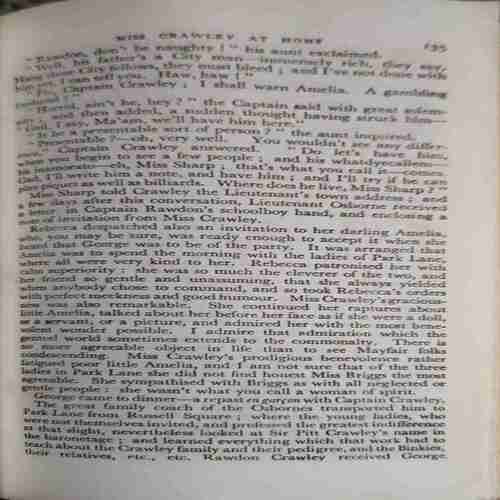 MISS CRAWLEY AT HOME 195
"Rawdon, don't be naughty!" his aunt exclaimed.
"Well, his father's a City man—immensely rich, they say.
Hang those City fellows, they must bleed; and I've not done with
him yet, I can tell you. Haw, haw!"
"Fie, Captain Crawley; I shall warn Amelia. A gambling
husband!"
"Horrid, ain't he, hey?" the Captain said with great solem-
nity; and then added, a sudden thought having struck him—
"Gad, I say, Ma'am, we'll have him here."
"Is he a presentable sort of person?" the aunt inquired.
"Presentable?—oh, very well. You wouldn't see any differ-
ence," Captain Crawley answered. "Do let's have him,
when you begin to see a few people; and his whatdyecallem—
his inamorato—eh, Miss Sharp; that's what you call it—comes.
Gad, I'll write him a note, and have him; and I'll try if he can
play piquet as well as billiards. Where does he live, Miss Sharp?"
Miss Sharp told Crawley the Lieutenant's town address; and
a few days after this conversation, Lieutenant Osborne received
a letter in Captain Rawdon's schoolboy hand, and enclosing a
note of invitation from Miss Crawley.
Rebecca despatched also an invitation to her darling Amelia,
who, you may be sure, was ready enough to accept it when she
heard that George was to be of the party. It was arranged that
Amelia was to spend the morning with the ladies of Park Lane,
where all were very kind to her. Rebecca patronised her with
calm superiority; she was so much the cleverer of the two, and
her friend so gentle and unassuming, that she always yielded
when anybody chose to command, and so took Rebecca's orders
with perfect meekness and good humour. Miss Crawley's gracious-
ness was also remarkable. She continued her raptures about
little Amelia, talked about her before her face as if she were a doll,
or a servant, or a picture, and admired her with the most bene-
volent wonder possible. I admire that admiration which the
genteel world sometimes extends to the commonalty. There is
no more agreeable object in life than to see Mayfair folks
condescending. Miss Crawley's prodigious benevolence rather
fatigued poor little Amelia, and I am not sure that of the three
ladies in Park Lane she did not find honest Miss Briggs the most
agreeable. She sympathised with Briggs as with all neglected or
gentle people; she wasn't what you call a woman of spirit.
George came to dinner—a repast en garçon with Captain Crawley.
The great family coach of the Osbornes transported him to
Park Lane from Russell Square; where the young ladies, who
were not themselves invited, and professed the greatest indifference
at that slight, nevertheless looked at Sir Pitt Crawley's name in
the baronetage; and learned everything which that work had to
teach about the Crawley family and their pedigree, and the Binkies,
their relatives, etc., etc. Rawdon Crawley received George